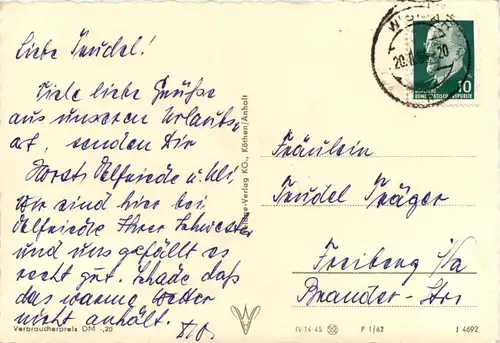 Liebe Trudel!
Viele liebe Grüße
aus unserem Urlaubs-
ort, senden Dir
Horst, Elfriede u. Uli,
Wir sind hier bei
Elfriede Ihrer Schwester
und uns gefällt es
recht gut. Schade daß
das warme Wetter
nicht anhält.
Verbraucherpreis DM -,20
Bild und Heimat
-Verlag KG., Köthen/Anhalt
10
DEMOKRATISCHE REPUBLIK
Fräulein
Trudel Träger
Freiberg i/Sa
Brander-Str.
IV-14-45 P 1/62 J 4692